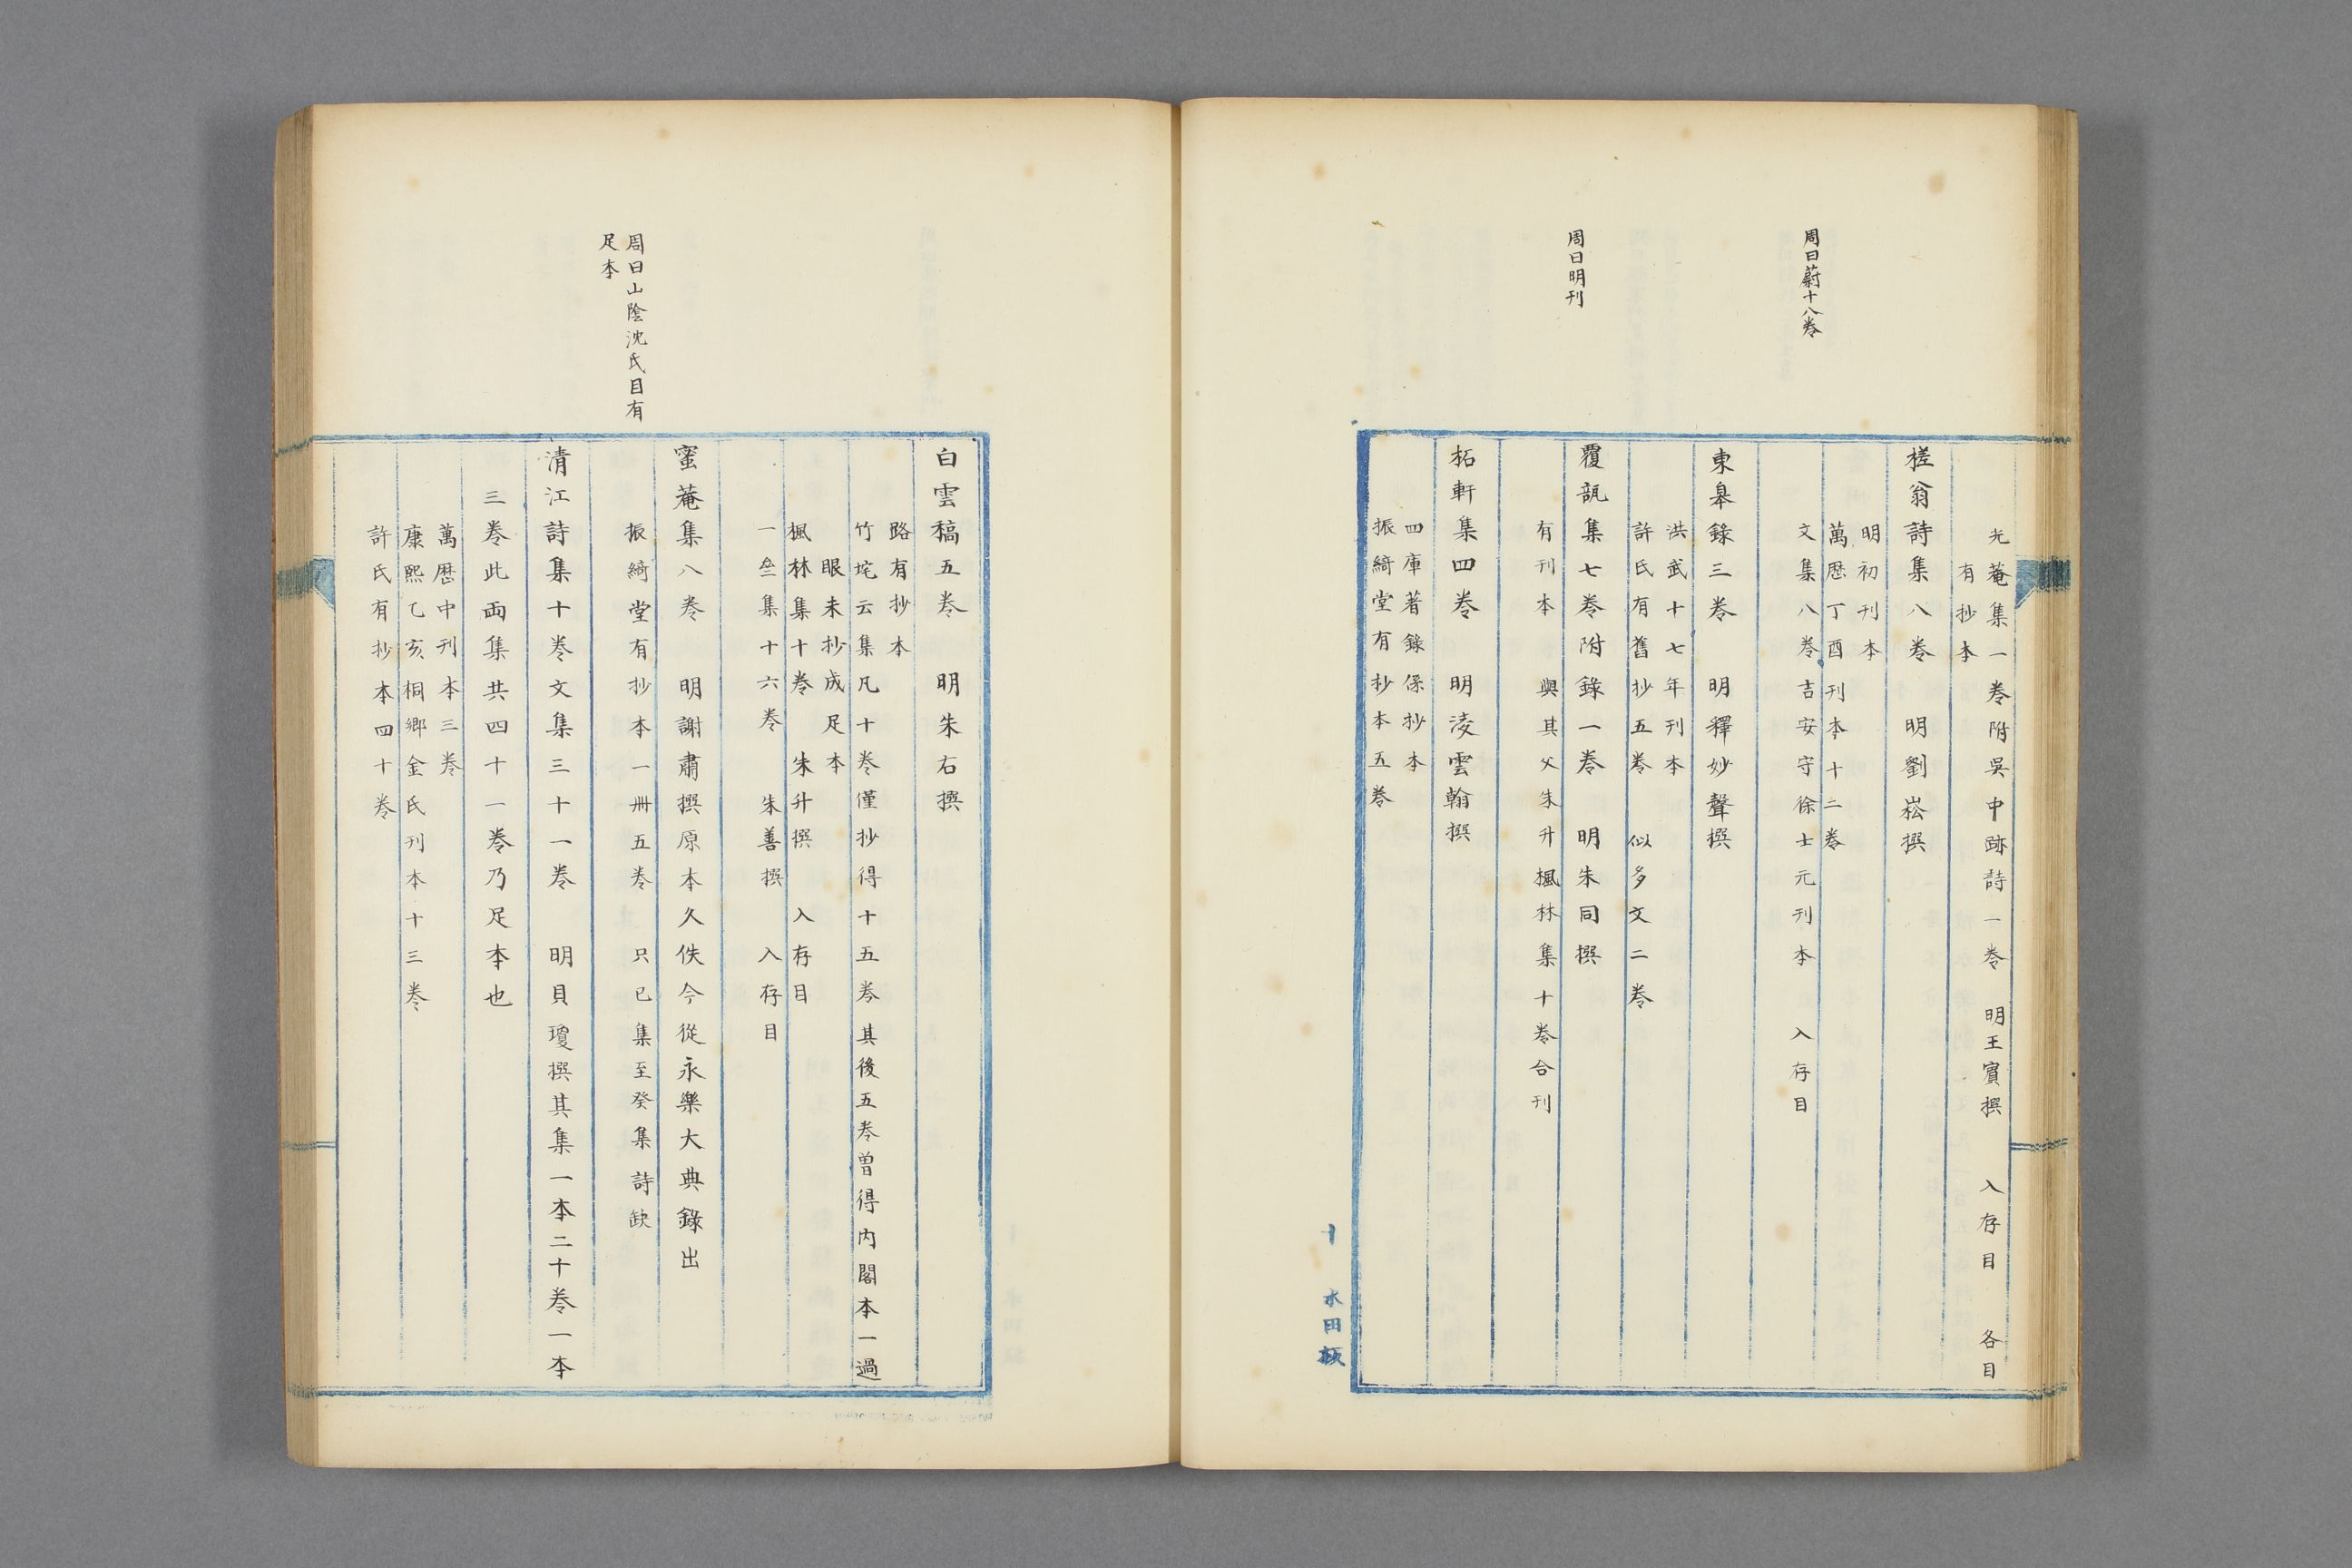 周曰蔚十八卷
周曰明刊
光菴集一卷附吳中跡詩一卷　明王賓撰　入存目　各目
有抄本
槎翁詩集八卷　明劉崧撰
明初刊本
萬歷丁酉刊本十二卷
文集八卷吉安守徐士元刊本　入存目
東皋錄三卷　明釋妙聲撰
洪武十七年刊本
許氏有舊抄五卷　似多文二卷
覆瓿集七卷附錄一卷　明朱同撰
有刊本　與其父朱升楓林集十卷合刊
柘軒集四卷　明淩雲翰撰
四庫著錄係抄本
振綺堂有抄本五卷
十　水田
周曰山陰沈氏目有
足本
白雲稿五卷　明朱右撰
路有抄本
竹垞云集凡十卷僅抄得十五卷其後五卷曾得内閣本一過
眼未抄成足本
楓林集十卷　朱升撰　入存目
一𠫭集十六卷　朱善撰　入存目
蜜菴集八卷　明謝肅撰原本久佚今從永樂大典錄出
振綺堂有抄本一冊五卷　只已集至癸集詩缺
清江詩集十卷文集三十一卷　明貝瓊撰其集一本二十卷一本
三卷此兩集共四十一卷乃足本也
萬歷中刊本三卷
康熙乙亥桐鄉金氏刊本十三卷
許氏有抄本四十卷